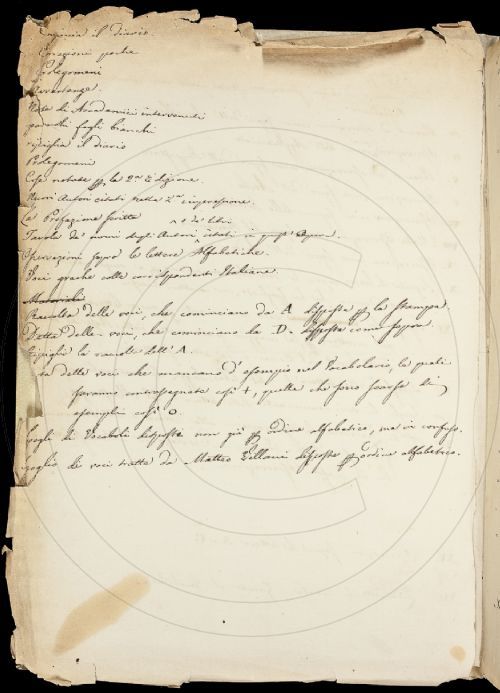 il diario
Correzioni poche
Prolegomeni
Avvertenze.
Nota di Accademici intervenuti
parecchi fogli bianchi
il diario
Prolegomeni
Cose notate p la 2.a Edizione.
Nuovi Autori citati nella 2.a impressione.
La Prefazione scritta
Tavola de' nomi degli Autori o de' libri citati in quest' Opera.
Operazioni sopra le lettere Alfabetiche.
Voci greche colle corrispondenti Italiane.
Raccolta delle voci, che cominciano da A disposta p la stampa.
Detta delle voci, che cominciano la D. disposta come sopra.
la raccolta dell' A.
ta delle voci che mancano d' esempio nel Vocabolario, le quali
saranno contrassegnate così +, quelle che sono scarse di
esempli così o.
fogli di Vocaboli disposti non già p ordine alfabetico, ma in confuso.
foglio di voci tratte da Matteo Villani disposte p ordine alfabetico.